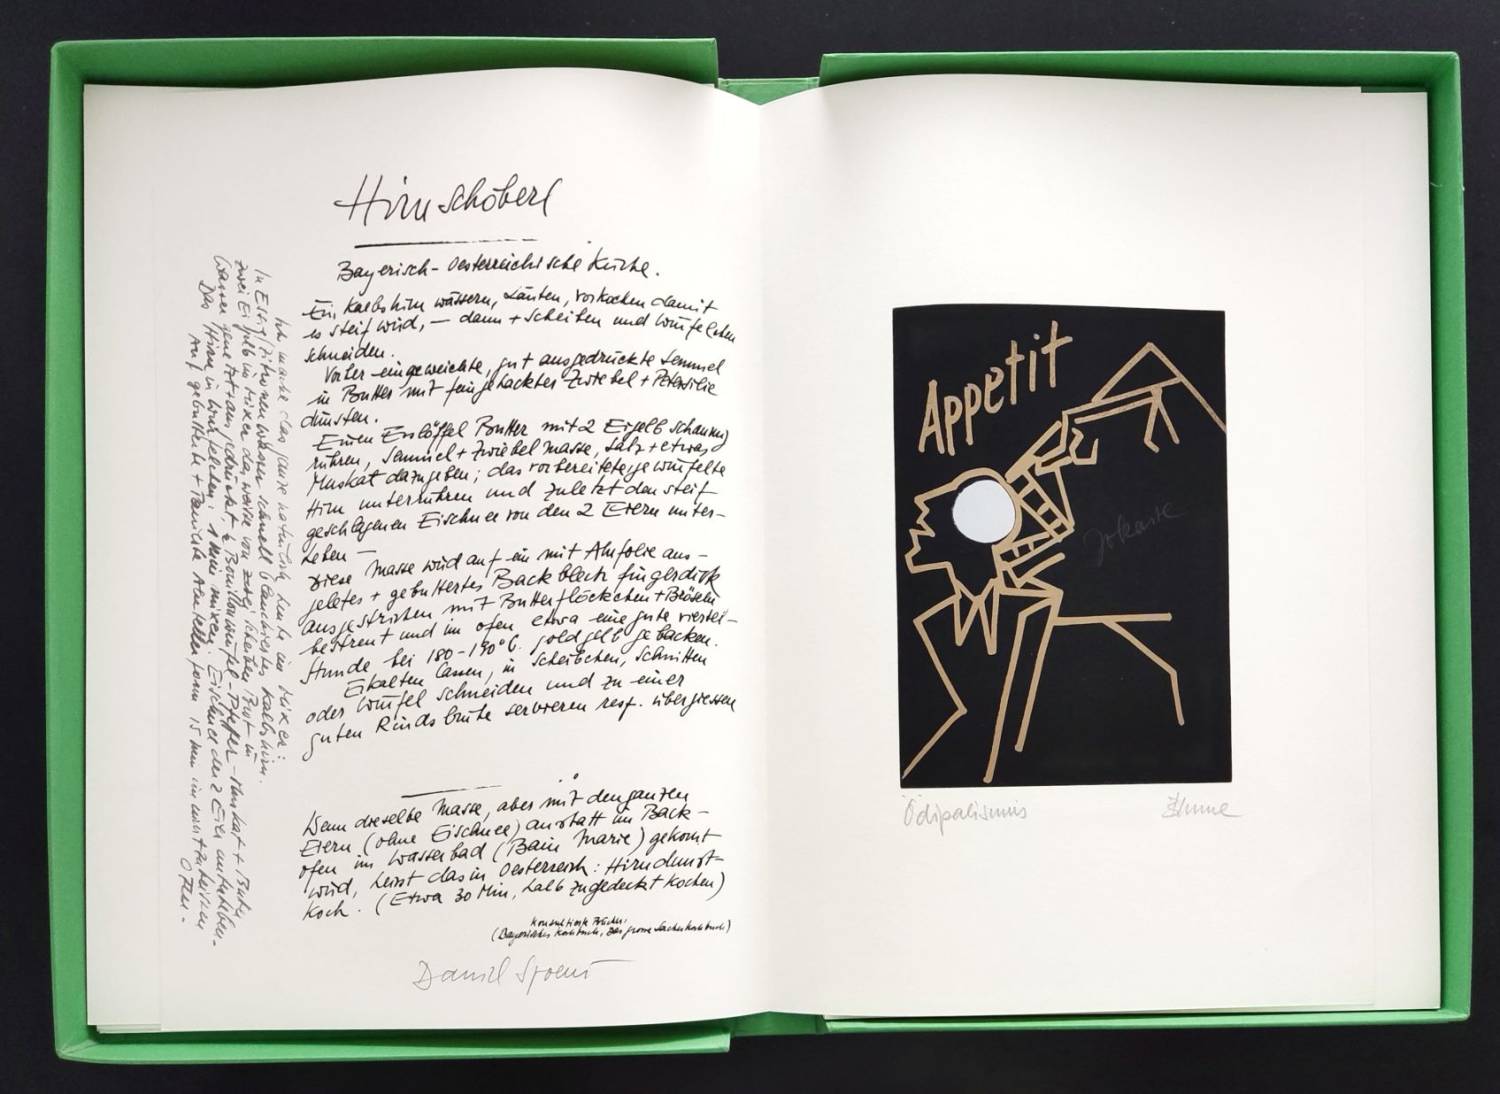 Hirnschöberl
Bayerisch-Oesterreichische Küche.
Ein Kalbshirn wässern, häuten, vorkochen damit
es steif wird, – dann + Scheiben und würfelchen
schneiden.
Vorher eingeweichte, gut ausgedrückte Semmel
in Butter mit feingehackter Zwiebel + Petersilie
dünsten.
Einen Esslöffel Butter mit 2 Eigelb schaumig
rühren, Semmel + Zwiebel masse, Salz + etwas
Muskat dazugeben; das vorbereitete gewürfelte
Hirn unterrühren und zuletzt den steif
geschlagenen Eischnee von den 2 Eiern unter-
heben –
Diese Masse wird auf ein mit Alufolie aus-
gelegtes + gebuttertes Backblech fingerdick
ausgestrichen mit Butterflöckchen + Bröseln
bestreut und im ofen etwa eine gute viertel-
stunde bei 180-190°C. goldgelb gebacken.
Erkalten lassen, in Scheibchen, Schnitten
oder Würfel schneiden und zu einer
guten Rindsbrühe servieren resp. übergiessen
Wenn dieselbe Masse, aber mit den ganzen
Eiern (ohne Eischnee) anstatt im Back-
ofen im Wasserbad (Bain Marie) gekocht
wird, heisst das in Oesterreich: Hirndunst-
koch. (Etwa 30 Min, halb zugedeckt kochen)
(Bayerisches Kochbuch, Das grosse Sacher Kochbuch)
Daniel Spoerri
Ich mache das ganze natürlich heute im Mixer:
In Essig/Zitronenwasser schnell blanchiertes Kalbshirn.
zwei Eigelb im Mixer das weisse von zwei Scheiben Brot in
Wasser genetzt + ausgedrückt ½ Bouillonwürfel – Pfeffer – Muskat + Butter
Das Hirn in würfelchen: 1 Min mixen Eischnee der 2 Eier unterheben-
Auf gebutterte + 15 Min im
Ofen-
Appetit
Jokaste
Ödipalismus
Blume